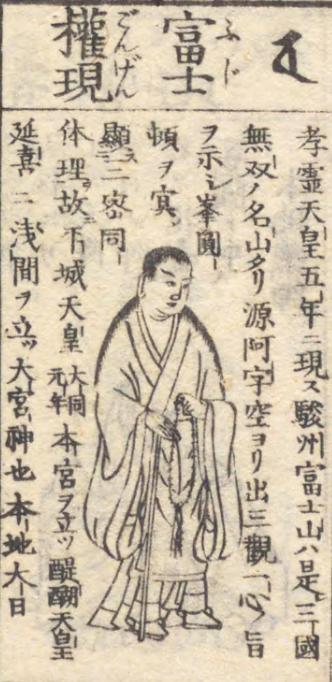 富士
ふじ
權現
ごんげん
孝霊天皇五年ニ現ス駿州富士山ハ是三國
無双ノ名山タリ源阿字空ヨリ出三觀一心ノ旨
ヲ示シ峯圓
頓ヲ
顯ス三密同
体理故下城天皇大同元年本宮ヲ立ツ醍醐天皇
延喜ニ浅間ヲ立ツ大宮神也本地大日